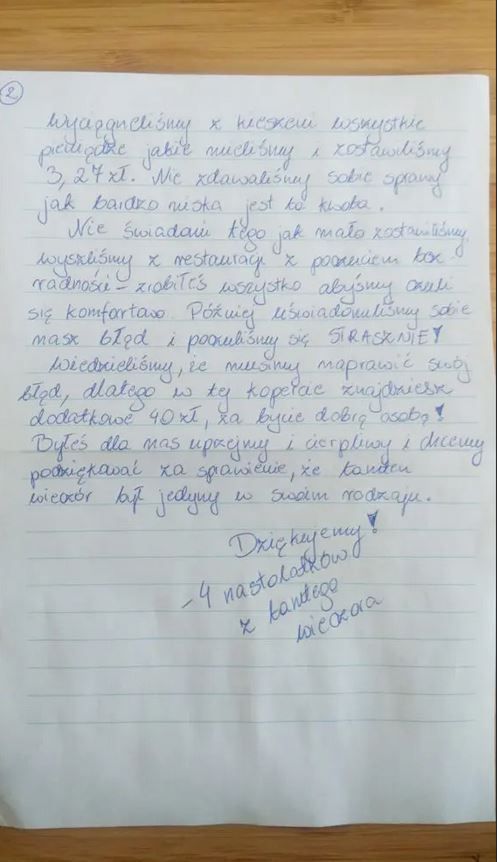 2
Wyciągnęliśmy z kieszeni wszystkie
pieniądze jakie mieliśmy i zostawiliśmy
3,27 zł. Nie zdawaliśmy sobie sprawy
jak bardzo niska jest to kwota.
Nie świadomi tego jak mało zostawiliśmy,
wyszliśmy z restauracji z poczuciem
radności – zrobiłeś wszystko abyśmy czuli
się komfortowo. Później uświadomiliśmy sobie
nasz błąd i poczuliśmy się STRASZNIE!
Wiedzieliśmy, że musimy naprawić swój
błąd, dlatego w tej kopercie znajdziesz
dodatkowe 40 zł, za bycie dobrą osobą!
Byłeś dla nas uprzejmy i cierpliwy i chcemy
podziękować za sprawienie, że tamten
wieczór był jedyny w swoim rodzaju.
Dziękujemy!
- 4 nastolatków
z tamtego
wieczora